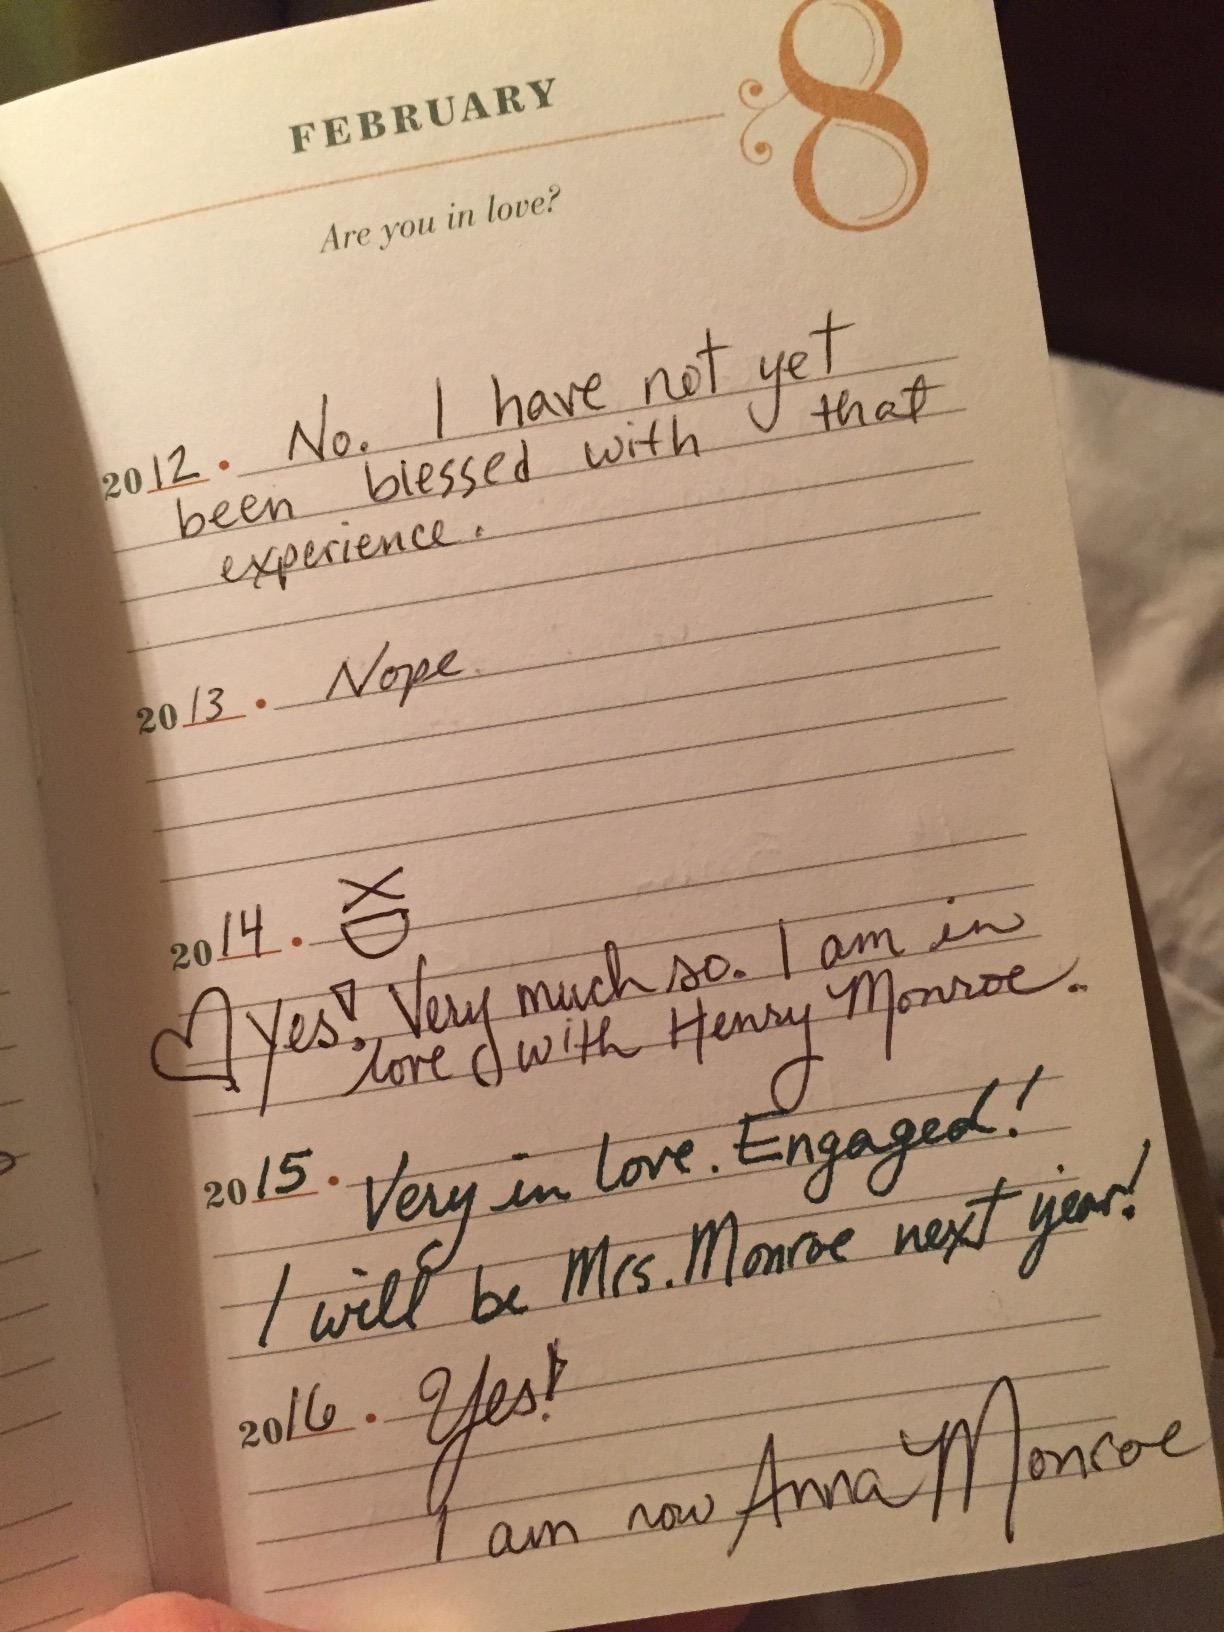 FEBRUARY
8
Are you in love?
2012. No. I have not yet
been blessed with that
experience.
2013. Nope.
2014. XD
♡ Yes! Very much so. I am in
love with Henry Monroe.
2015. Very in love. Engaged!
I will be Mrs. Monroe next year!
2016. Yes!
I am now Anna Monroe